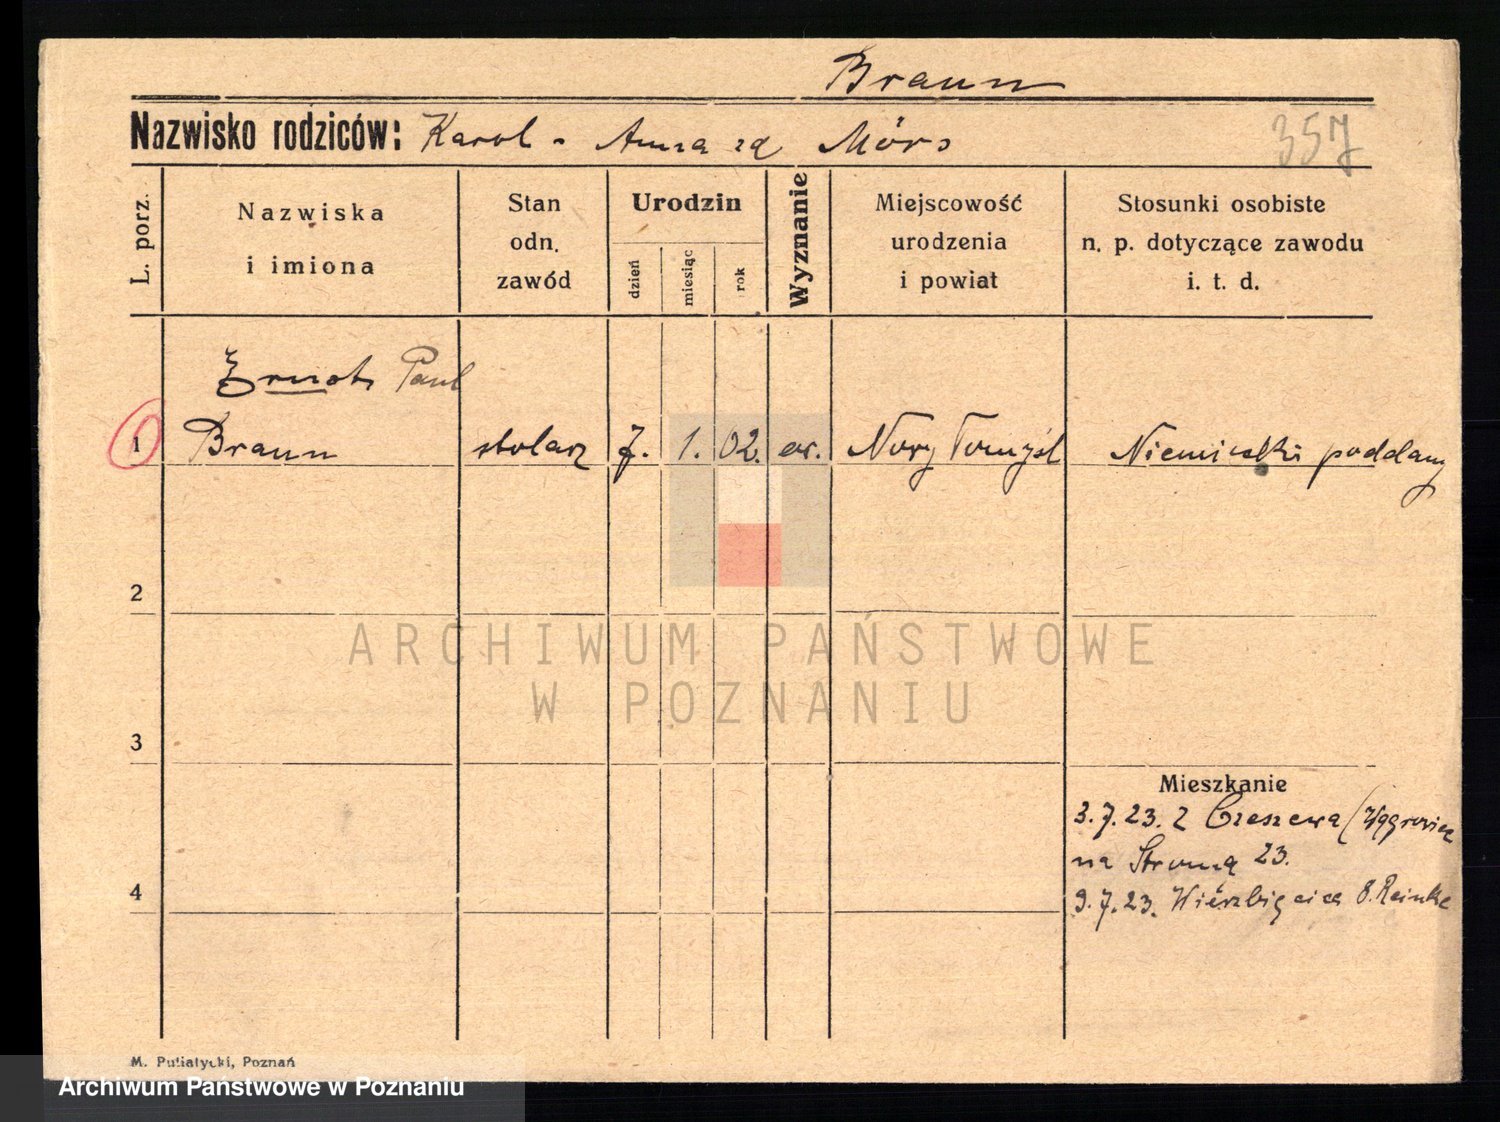 Braun
Nazwisko rodziców: Karol - Anna zd Mórs
357
L. porz.
Nazwiska
i imiona
Stan
odn.
zawód
Urodzin
dzień
miesiąc
rok
Wyznanie
Miejscowość
urodzenia
i powiat
Stosunki osobiste
n. p. dotyczące zawodu
i. t. d.
Ernst Paul
1 Braun stolarz 7. 1. 02. ew. Nowy Tomyśl Niemiecki poddany
2
ARCHIWUM PAŃSTWOWE
W POZNANIU
3
Mieszkanie
3.7.23. z Czeszewa (Wągrowiec
na Stromą 23.
4
9.7.23. Wierzbięcice 8. Reinke
M. Putiatycki, Poznań
Archiwum Państwowe w Poznaniu